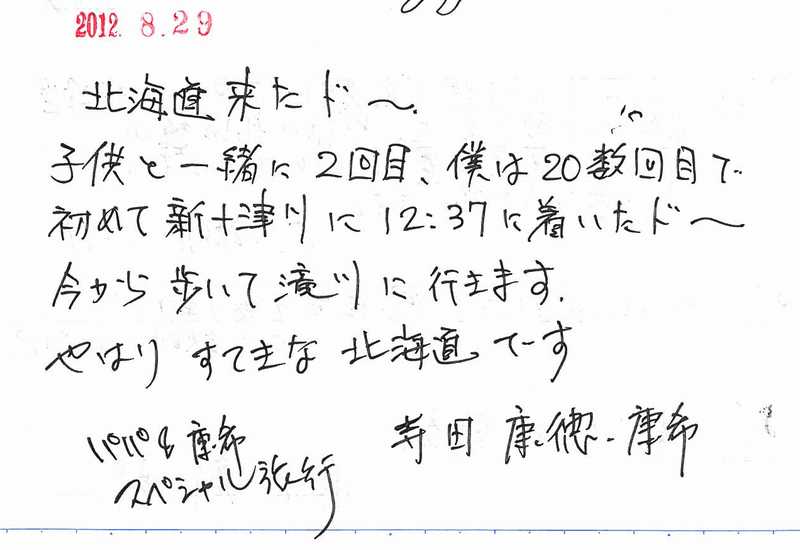 2012. 8.29
北海道来たド〜.
子供と一緒に2回目、僕は20数回目で
初めて新十津川に12:37に着いたド〜
今から歩いて滝川に行きます.
やはりすてきな北海道でーす
寺田康徳・康希
パパ&康希
スペシャル旅行